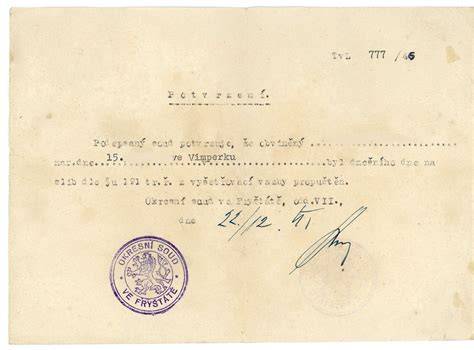 TvL 777 /46
Potvrzení.
Podepsaný soud potvrzuje, že obviněný
nar.dne 15. ve Vimperku byl dnešního dne na
slib dle §u 191 tr.ř. z vyšetřovací vazby propuštěn.
Okresní soud ve Fryštátě, odd.VII.,
dne 22/12
OKRESNÍ SOUD
VE FRYŠTÁTĚ